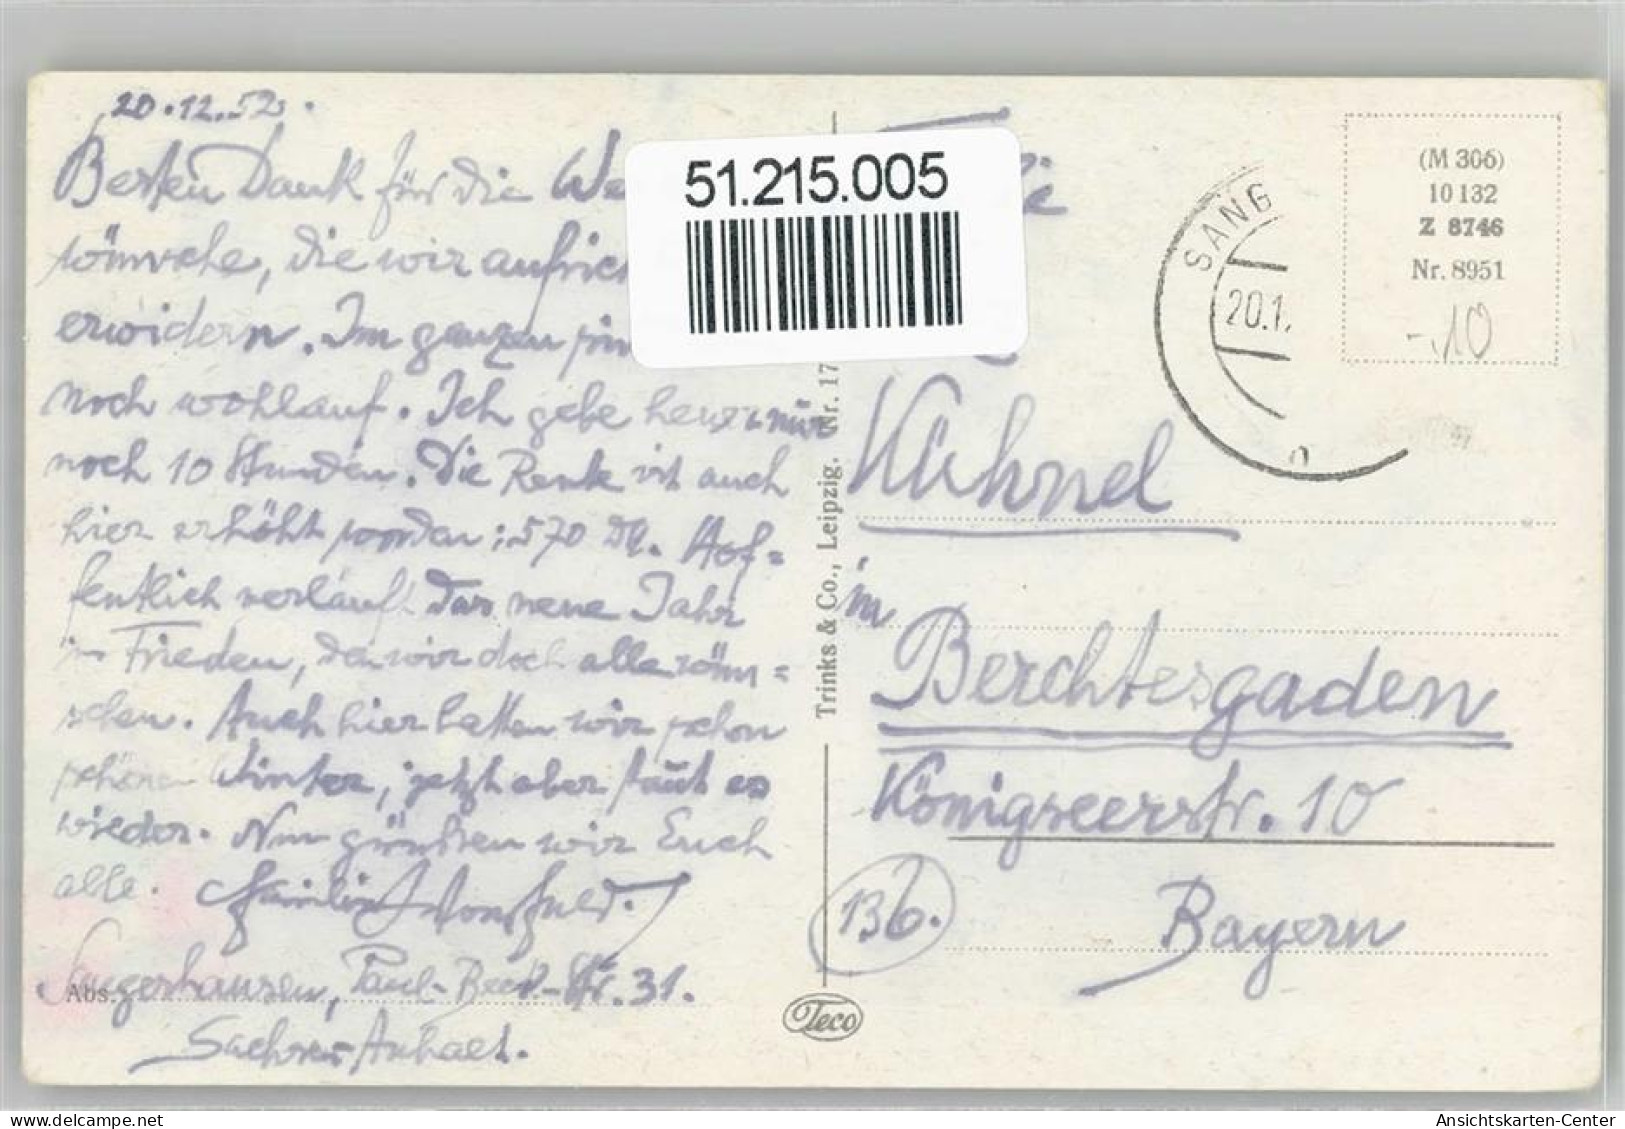 20.12.52.
Besten Dank für die We
wünsche, die wir aufric
erwidern. Im ganzen sin
noch wohlauf. Ich gebe heuer nur
noch 10 Stunden. Die Rente ist auch
hier erhöht worden: 570 DM. Hof=
fentlich verläuft das neue Jahr
in Frieden, den wir doch alle wün=
schen. Auch hier hatten wir schon
schönen Winter, jetzt aber taut es
wieder. Nun grüßen wir Euch
alle.
Abs.
Sangerhausen, Paul-Beck-Str. 31.
Sachsen-Anhalt.
Trinks & Co., Leipzig. Nr. 17
Teco
51.215.005
ie
Kühnel
in
Berchtesgaden
Königseerstr. 10
13b.
Bayern
SANG
20.1.
(M 306)
10 132
Z 8746
Nr. 8951
-.10
Ansichtskarten-Center